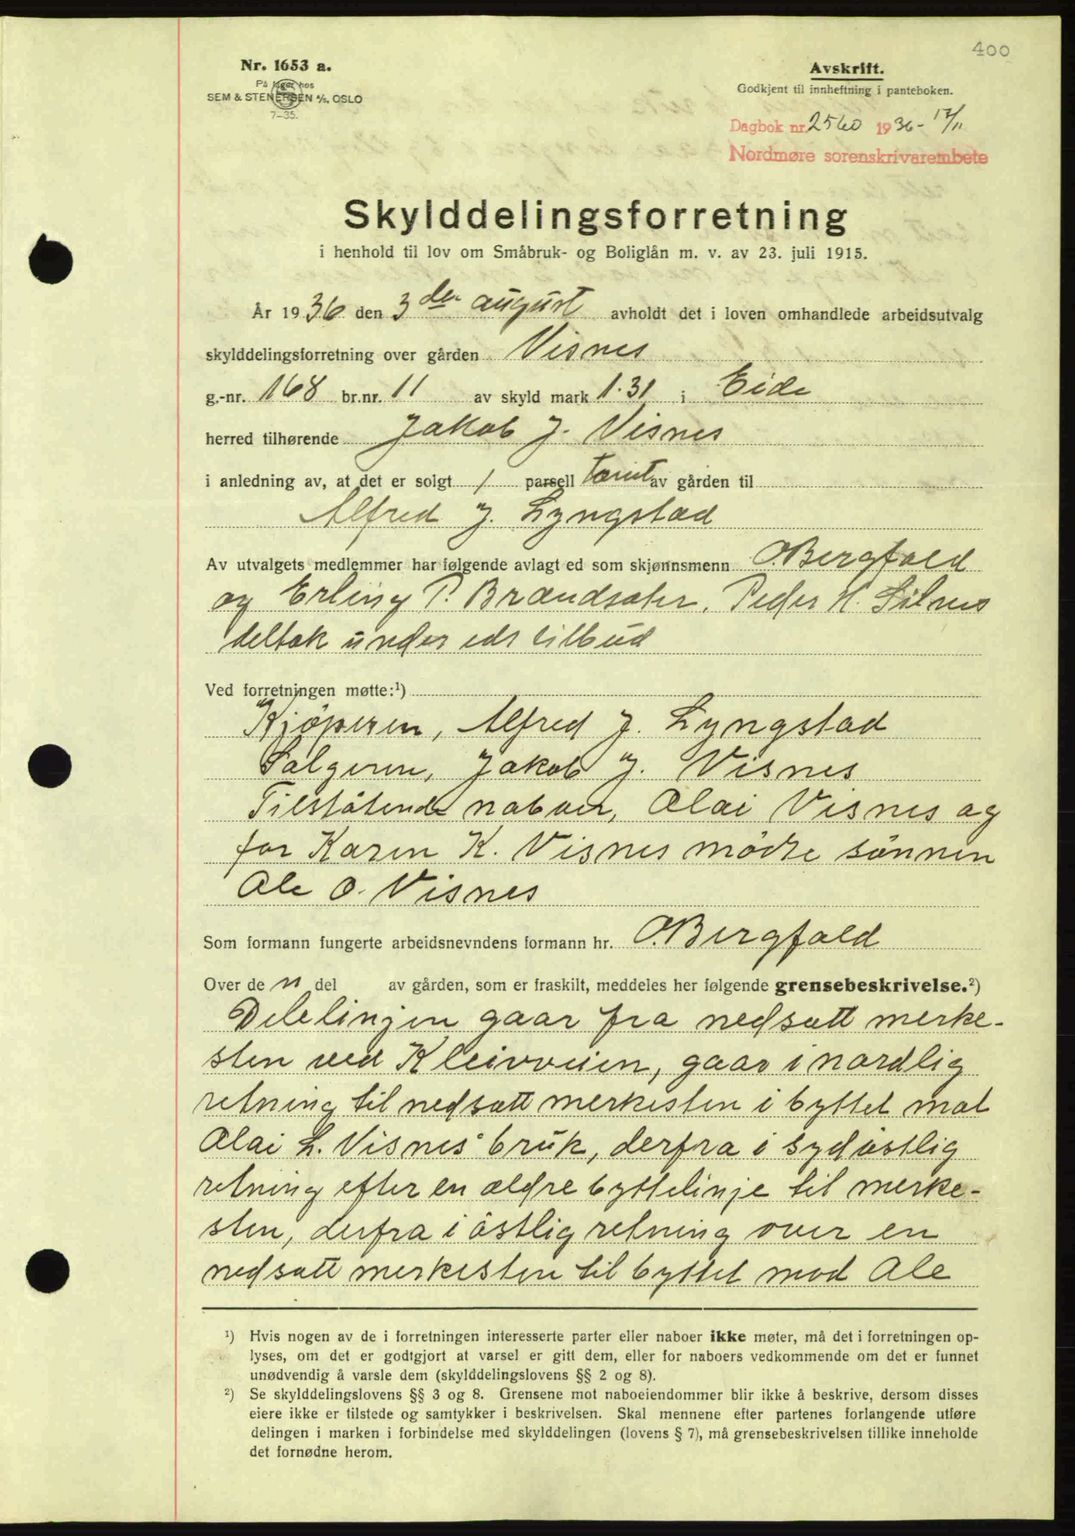 400
Nr. 1653 a.
På lager hos
SEM & STENERSEN A/S, OSLO
7-35.
Avskrift.
Godkjent til innheftning i panteboken.
Dagbok nr. 2560 1936 - 17/11
Nordmøre sorenskrivarembete
Skylddelingsforretning
i henhold til lov om Småbruk- og Boliglån m. v. av 23. juli 1915.
År 1936 den 3 die august avholdt det i loven omhandlede arbeidsutvalg
skylddelingsforretning over gården Visnes
g.-nr. 168 br.nr. 11 av skyld mark 1.31 i Eide
herred tilhørende Jakob J. Visnes
i anledning av, at det er solgt 1 parsell tomt av gården til
Alfred J. Lyngstad
Av utvalgets medlemmer har følgende avlagt ed som skjønnsmenn O. Bergfald
og Erling P. Brandsæter, Peder H. Silnes
deltok under eds tilbud
Ved forretningen møtte:¹)
Kjöperen, Alfred J. Lyngstad
Sælgeren, Jakob J. Visnes
Tilstötende naboer, Olai Visnes og
for Karen K. Visnes mödte sönnen
Ole O. Visnes
Som formann fungerte arbeidsnevndens formann hr. O. Bergfald
Over de n del av gården, som er fraskilt, meddeles her følgende grensebeskrivelse.²)
Delelinjen gaar fra nedsatt merke-
sten ved Kleivveien, gaar i nordlig
retning til nedsatt merkesten i byttet mot
Olai L. Visnes' bruk, derfra i sydöstlig
retning efter en ældre byttelinje til merke-
sten, derfra i östlig retning over en
nedsatt merkesten til byttet mod Ole
¹) Hvis nogen av de i forretningen interesserte parter eller naboer ikke møter, må det i forretningen op-
lyses, om det er godtgjort at varsel er gitt dem, eller for naboers vedkommende om det er funnet
unødvendig å varsle dem (skylddelingslovens §§ 2 og 8).
²) Se skylddelingslovens §§ 3 og 8. Grensene mot naboeiendommer blir ikke å beskrive, dersom disses
eiere ikke er tilstede og samtykker i beskrivelsen. Skal mennene efter partenes forlangende utføre
delingen i marken i forbindelse med skylddelingen (lovens § 7), må grensebeskrivelsen tillike inneholde
det fornødne herom.